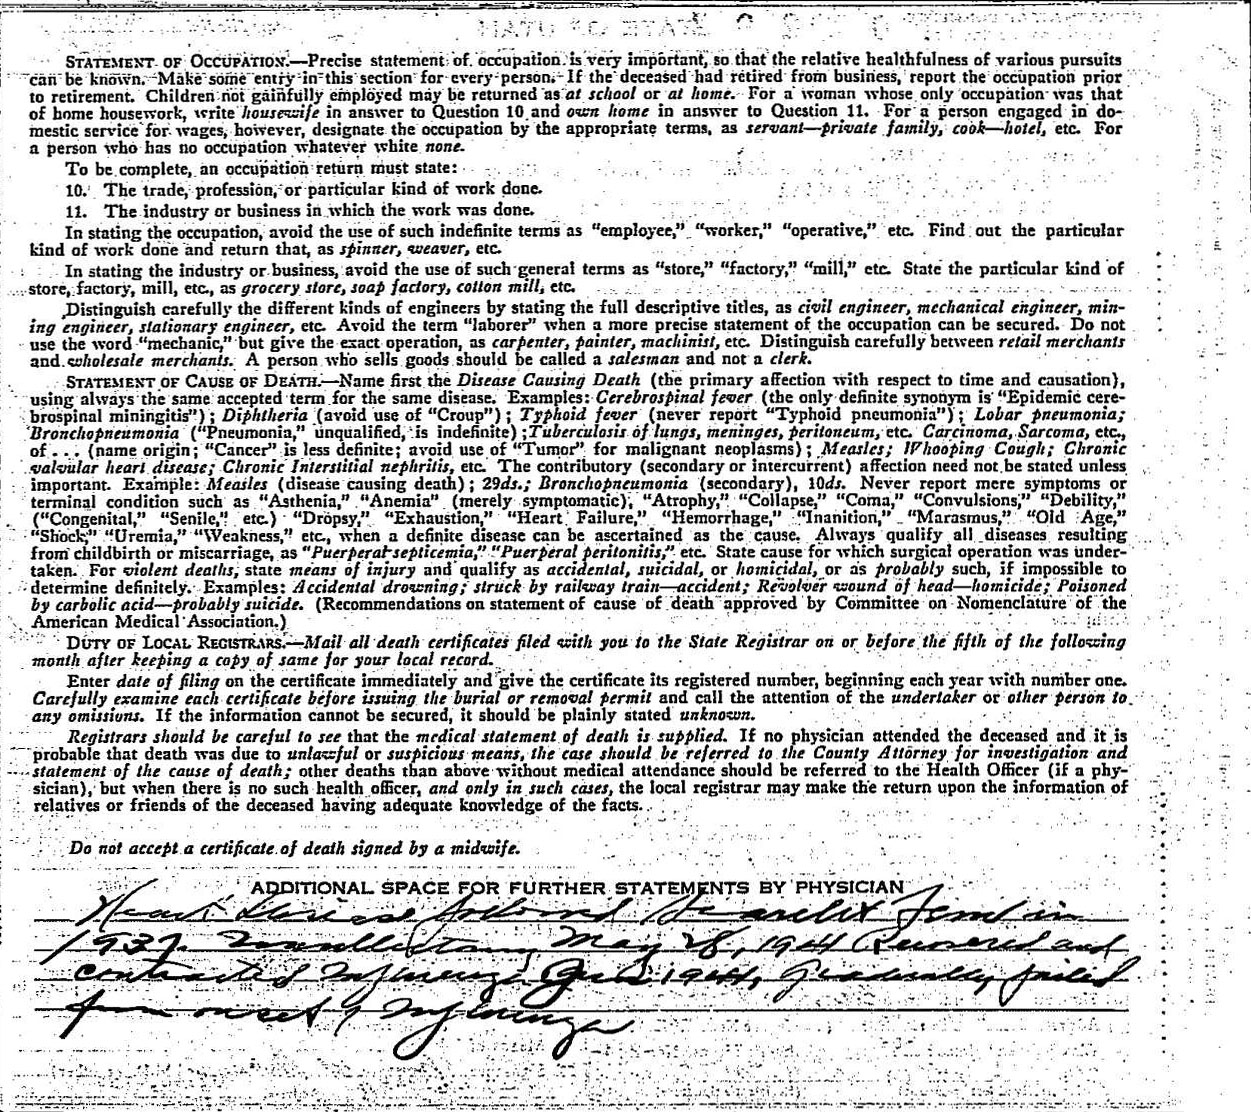 STATE OF UTAH
STATEMENT OF OCCUPATION.—Precise statement of occupation is very important, so that the relative healthfulness of various pursuits
can be known. Make some entry in this section for every person. If the deceased had retired from business, report the occupation prior
to retirement. Children not gainfully employed may be returned as at school or at home. For a woman whose only occupation was that
of home housework, write housewife in answer to Question 10 and own home in answer to Question 11. For a person engaged in do-
mestic service for wages, however, designate the occupation by the appropriate terms, as servant—private family, cook—hotel, etc. For
a person who has no occupation whatever white none.
To be complete, an occupation return must state:
10. The trade, profession, or particular kind of work done.
11. The industry or business in which the work was done.
In stating the occupation, avoid the use of such indefinite terms as “employee,” “worker,” “operative,” etc. Find out the particular
kind of work done and return that, as spinner, weaver, etc.
In stating the industry or business, avoid the use of such general terms as “store,” “factory,” “mill,” etc. State the particular kind of
store, factory, mill, etc., as grocery store, soap factory, cotton mill, etc.
Distinguish carefully the different kinds of engineers by stating the full descriptive titles, as civil engineer, mechanical engineer, min-
ing engineer, stationary engineer, etc. Avoid the term “laborer” when a more precise statement of the occupation can be secured. Do not
use the word “mechanic,” but give the exact operation, as carpenter, painter, machinist, etc. Distinguish carefully between retail merchants
and wholesale merchants. A person who sells goods should be called a salesman and not a clerk.
STATEMENT OF CAUSE OF DEATH.—Name first the Disease Causing Death (the primary affection with respect to time and causation),
using always the same accepted term for the same disease. Examples: Cerebrospinal fever (the only definite synonym is “Epidemic cere-
brospinal miningitis”); Diphtheria (avoid use of “Croup”); Typhoid fever (never report “Typhoid pneumonia”); Lobar pneumonia;
Bronchopneumonia (“Pneumonia,” unqualified, is indefinite); Tuberculosis of lungs, meninges, peritoneum, etc. Carcinoma, Sarcoma, etc.,
of . . . (name origin; “Cancer” is less definite; avoid use of “Tumor” for malignant neoplasms); Measles; Whooping Cough; Chronic
valvular heart disease; Chronic Interstitial nephritis, etc. The contributory (secondary or intercurrent) affection need not be stated unless
important. Example: Measles (disease causing death); 29ds.; Bronchopneumonia (secondary), 10ds. Never report mere symptoms or
terminal condition such as “Asthenia,” “Anemia” (merely symptomatic), “Atrophy,” “Collapse,” “Coma,” “Convulsions,” “Debility,”
(“Congenital,” “Senile,” etc.) “Dropsy,” “Exhaustion,” “Heart Failure,” “Hemorrhage,” “Inanition,” “Marasmus,” “Old Age,”
“Shock,” “Uremia,” “Weakness,” etc., when a definite disease can be ascertained as the cause. Always qualify all diseases resulting
from childbirth or miscarriage, as “Puerperal septicemia,” “Puerperal peritonitis,” etc. State cause for which surgical operation was under-
taken. For violent deaths, state means of injury and qualify as accidental, suicidal, or homicidal, or as probably such, if impossible to
determine definitely. Examples: Accidental drowning; struck by railway train—accident; Revolver wound of head—homicide; Poisoned
by carbolic acid—probably suicide. (Recommendations on statement of cause of death approved by Committee on Nomenclature of the
American Medical Association.)
DUTY OF LOCAL REGISTRARS.—Mail all death certificates filed with you to the State Registrar on or before the fifth of the following
month after keeping a copy of same for your local record.
Enter date of filing on the certificate immediately and give the certificate its registered number, beginning each year with number one.
Carefully examine each certificate before issuing the burial or removal permit and call the attention of the undertaker or other person to
any omissions. If the information cannot be secured, it should be plainly stated unknown.
Registrars should be careful to see that the medical statement of death is supplied. If no physician attended the deceased and it is
probable that death was due to unlawful or suspicious means, the case should be referred to the County Attorney for investigation and
statement of the cause of death; other deaths than above without medical attendance should be referred to the Health Officer (if a phy-
sician), but when there is no such health officer, and only in such cases, the local registrar may make the return upon the information of
relatives or friends of the deceased having adequate knowledge of the facts.
Do not accept a certificate of death signed by a midwife.
ADDITIONAL SPACE FOR FURTHER STATEMENTS BY PHYSICIAN
Heart Disease followed Scarlet Fever in
1937. May 28, 1941 Recovered and
contracted Influenza 1944, Gradually failed
from onset of Influenza